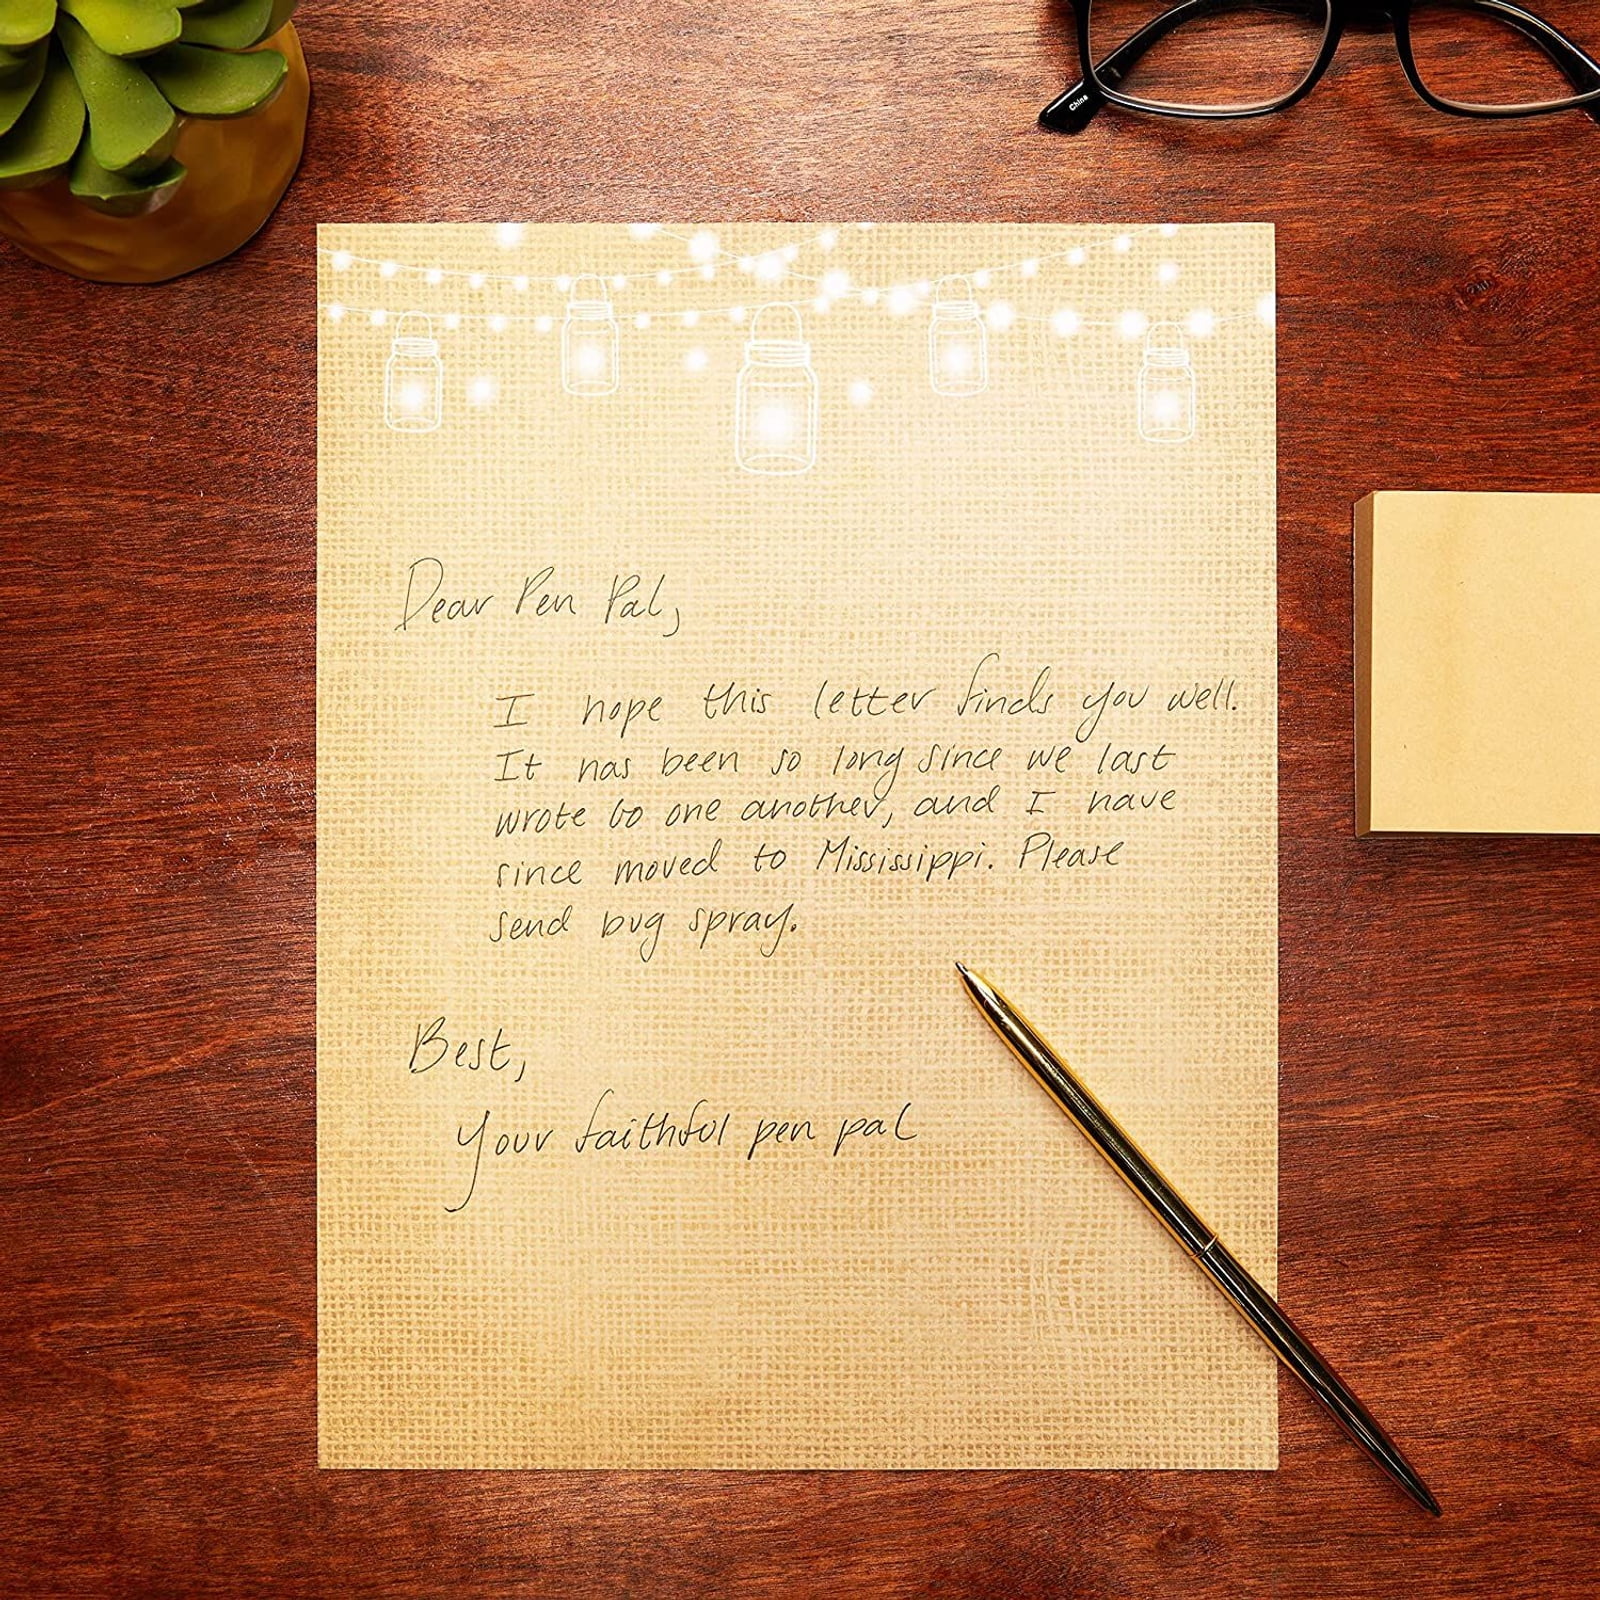 China
Dear Pen Pal,
I hope this letter finds you well.
It has been so long since we last
wrote to one another, and I have
since moved to Mississippi. Please
send bug spray.
Best,
Your faithful pen pal